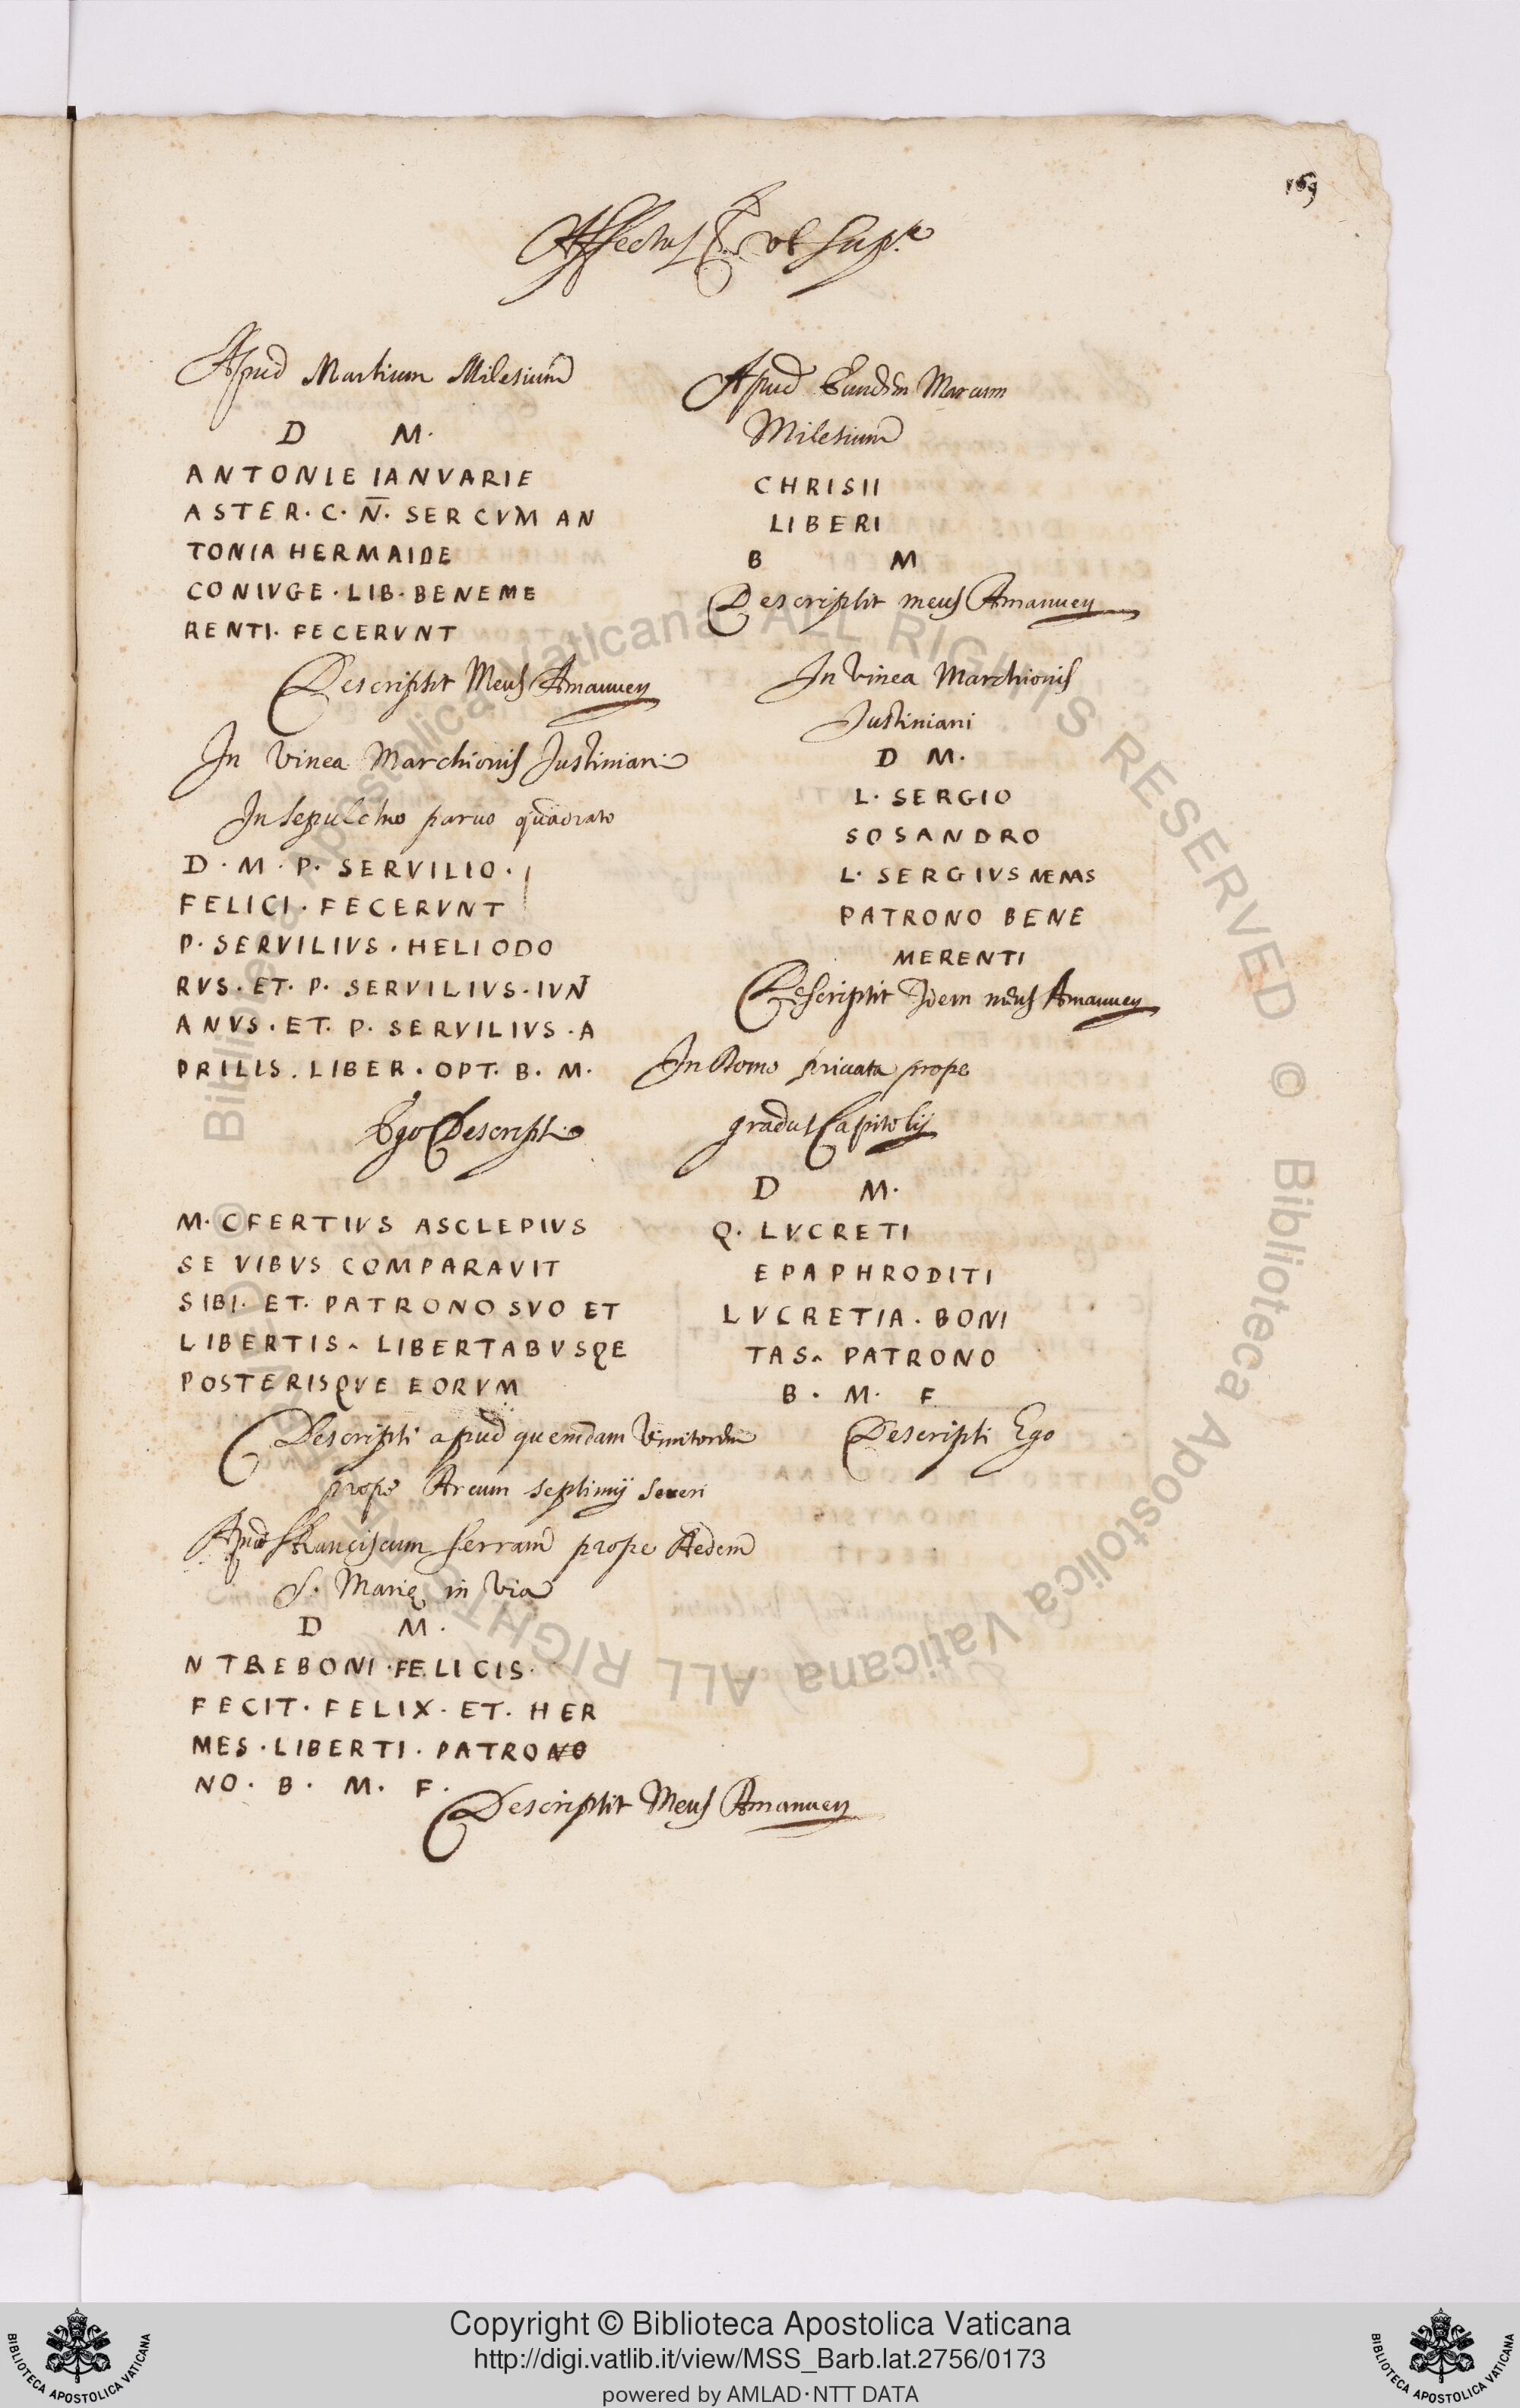 169
Affectus &c. ut sup.ª
Apud Martium Milesium
D M·
ANTONIE IANVARIE
ASTER· C· N̅· SER CVM AN
TONIA HERMAIDE
CONIVGE · LIB· BENEME
RENTI· FECERVNT
Descripsit Meus Amanuen
In Vinea Marchionis Justiniani
In Sepulchro paruo quadrato
D · M · P· SERVILIO ·
FELICI · FECERVNT
P· SERVILIVS · HELIODO
RVS· ET· P· SERVILIVS· IVN
ANVS· ET· P· SERVILIVS · A
PRILIS. LIBER · OPT· B· M·
Ego Descripsi
M· CFERTIVS ASCLEPIVS
SE VIBVS COMPARAVIT
SIBI· ET· PATRONO SVO ET
LIBERTIS ^ LIBERTABVSQE
POSTERISQVE EORVM
Descripsi apud quemdam Vinitorem
prope Arcum Septimij Seueri
Apud Franciscum Serram prope Aedem
S. Marię in Via
D M·
N TREBONI · FELICIS·
FECIT· FELIX· ET· HER
MES · LIBERTI· PATRONO
NO· B· M· F·
Descripsit Meus Amanuen
Apud Eundem Marcum
Milesium
CHRISII
LIBERI
B M
Descripsit meus Amanuen
In Vinea Marchionis
Justiniani
D M·
L· SERGIO
SOSANDRO
L· SERGIVS
PATRONO BENE
MERENTI
Descripsit Idem meus Amanuen
In Domo priuata prope
gradus Capitolij
D M·
Q. LVCRETI
EPAPHRODITI
LVCRETIA · BONI
TAS ^ PATRONO
B · M· F
Descripsi Ego
© Biblioteca Apostolica Vaticana ALL RIGHTS RESERVED © Biblioteca Apostolica Vaticana ALL RIGHTS RESERVED
BIBLIOTECA APOSTOLICA VATICANA
Copyright © Biblioteca Apostolica Vaticana
http://digi.vatlib.it/view/MSS_Barb.lat.2756/0173
powered by AMLAD·NTT DATA
BIBLIOTECA APOSTOLICA VATICANA